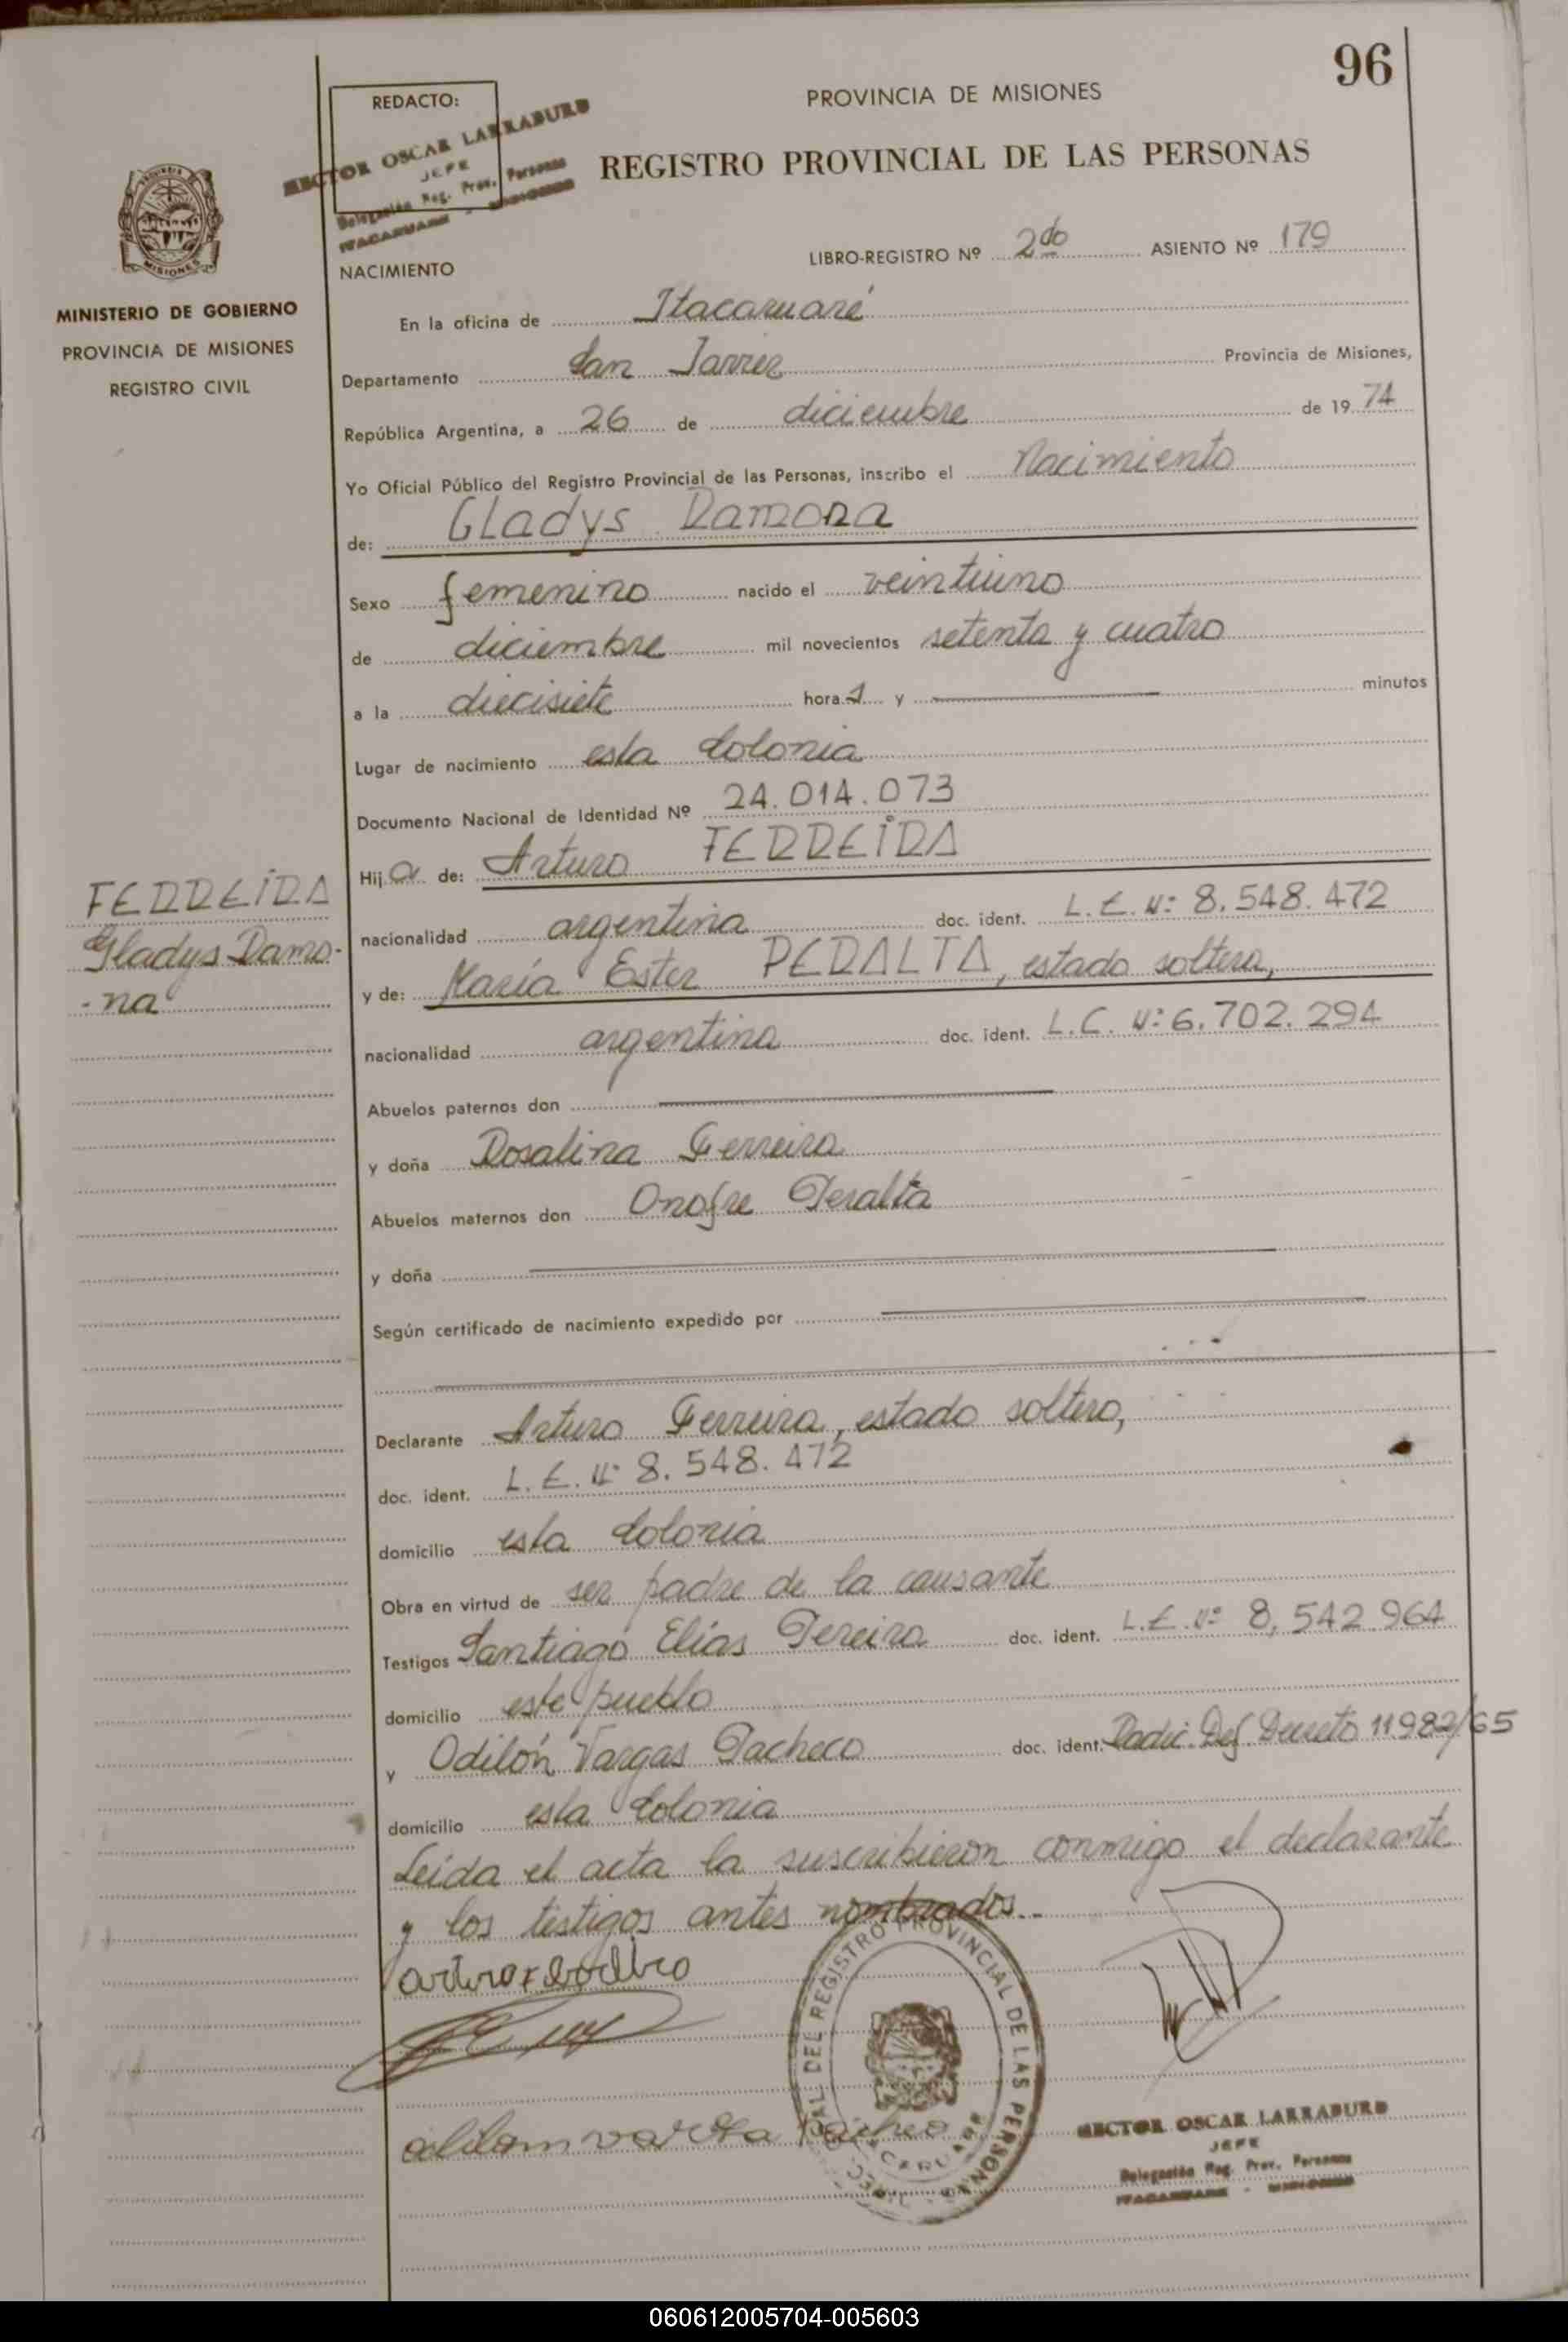 96
REDACTO:
HECTOR OSCAR LARRABURU
JEFE
Delegación Reg. Prov. Personas
ITACARUARE - MISIONES
PROVINCIA DE MISIONES
REGISTRO PROVINCIAL DE LAS PERSONAS
LIBRO-REGISTRO Nº 2do ASIENTO Nº 179
MISIONES
MINISTERIO DE GOBIERNO
PROVINCIA DE MISIONES
REGISTRO CIVIL
NACIMIENTO
En la oficina de Itacaruaré
Departamento San Javier Provincia de Misiones,
República Argentina, a 26 de diciembre de 1974
Yo Oficial Público del Registro Provincial de las Personas, inscribo el Nacimiento
de: Gladys Ramona
Sexo femenino nacido el veintiuno
de diciembre mil novecientos setenta y cuatro
a la diecisiete hora s y minutos
Lugar de nacimiento esta Colonia
Documento Nacional de Identidad Nº 24.014.073
Hija de: Arturo FERREIRA
nacionalidad argentina doc. ident. L.E. Nº 8.548.472
y de: María Ester PERALTA, estado soltera,
nacionalidad argentina doc. ident. L.C. Nº 6.702.294
FERREIRA
Gladys Ramo-
-na
Abuelos paternos don
y doña Rosalina Ferreira
Abuelos maternos don Onofre Peralta
y doña
Según certificado de nacimiento expedido por
Declarante Arturo Ferreira, estado soltero,
doc. ident. L.E. Nº 8.548.472
domicilio esta Colonia
Obra en virtud de ser padre de la causante
Testigos Santiago Elías Pereira doc. ident. L.E. Nº 8,542.964
domicilio este pueblo
y Odilón Vargas Pacheco doc. ident. Radic. Def. Decreto 11982/65
domicilio esta Colonia
Leída el acta la suscribieron conmigo el declarante
y los testigos antes nombrados.-
DEL REGISTRO PROVINCIAL DE LAS PERSONAS
HECTOR OSCAR LARRABURU
JEFE
Delegación Reg. Prov. Personas
ITACARUARE - MISIONES
060612005704-005603